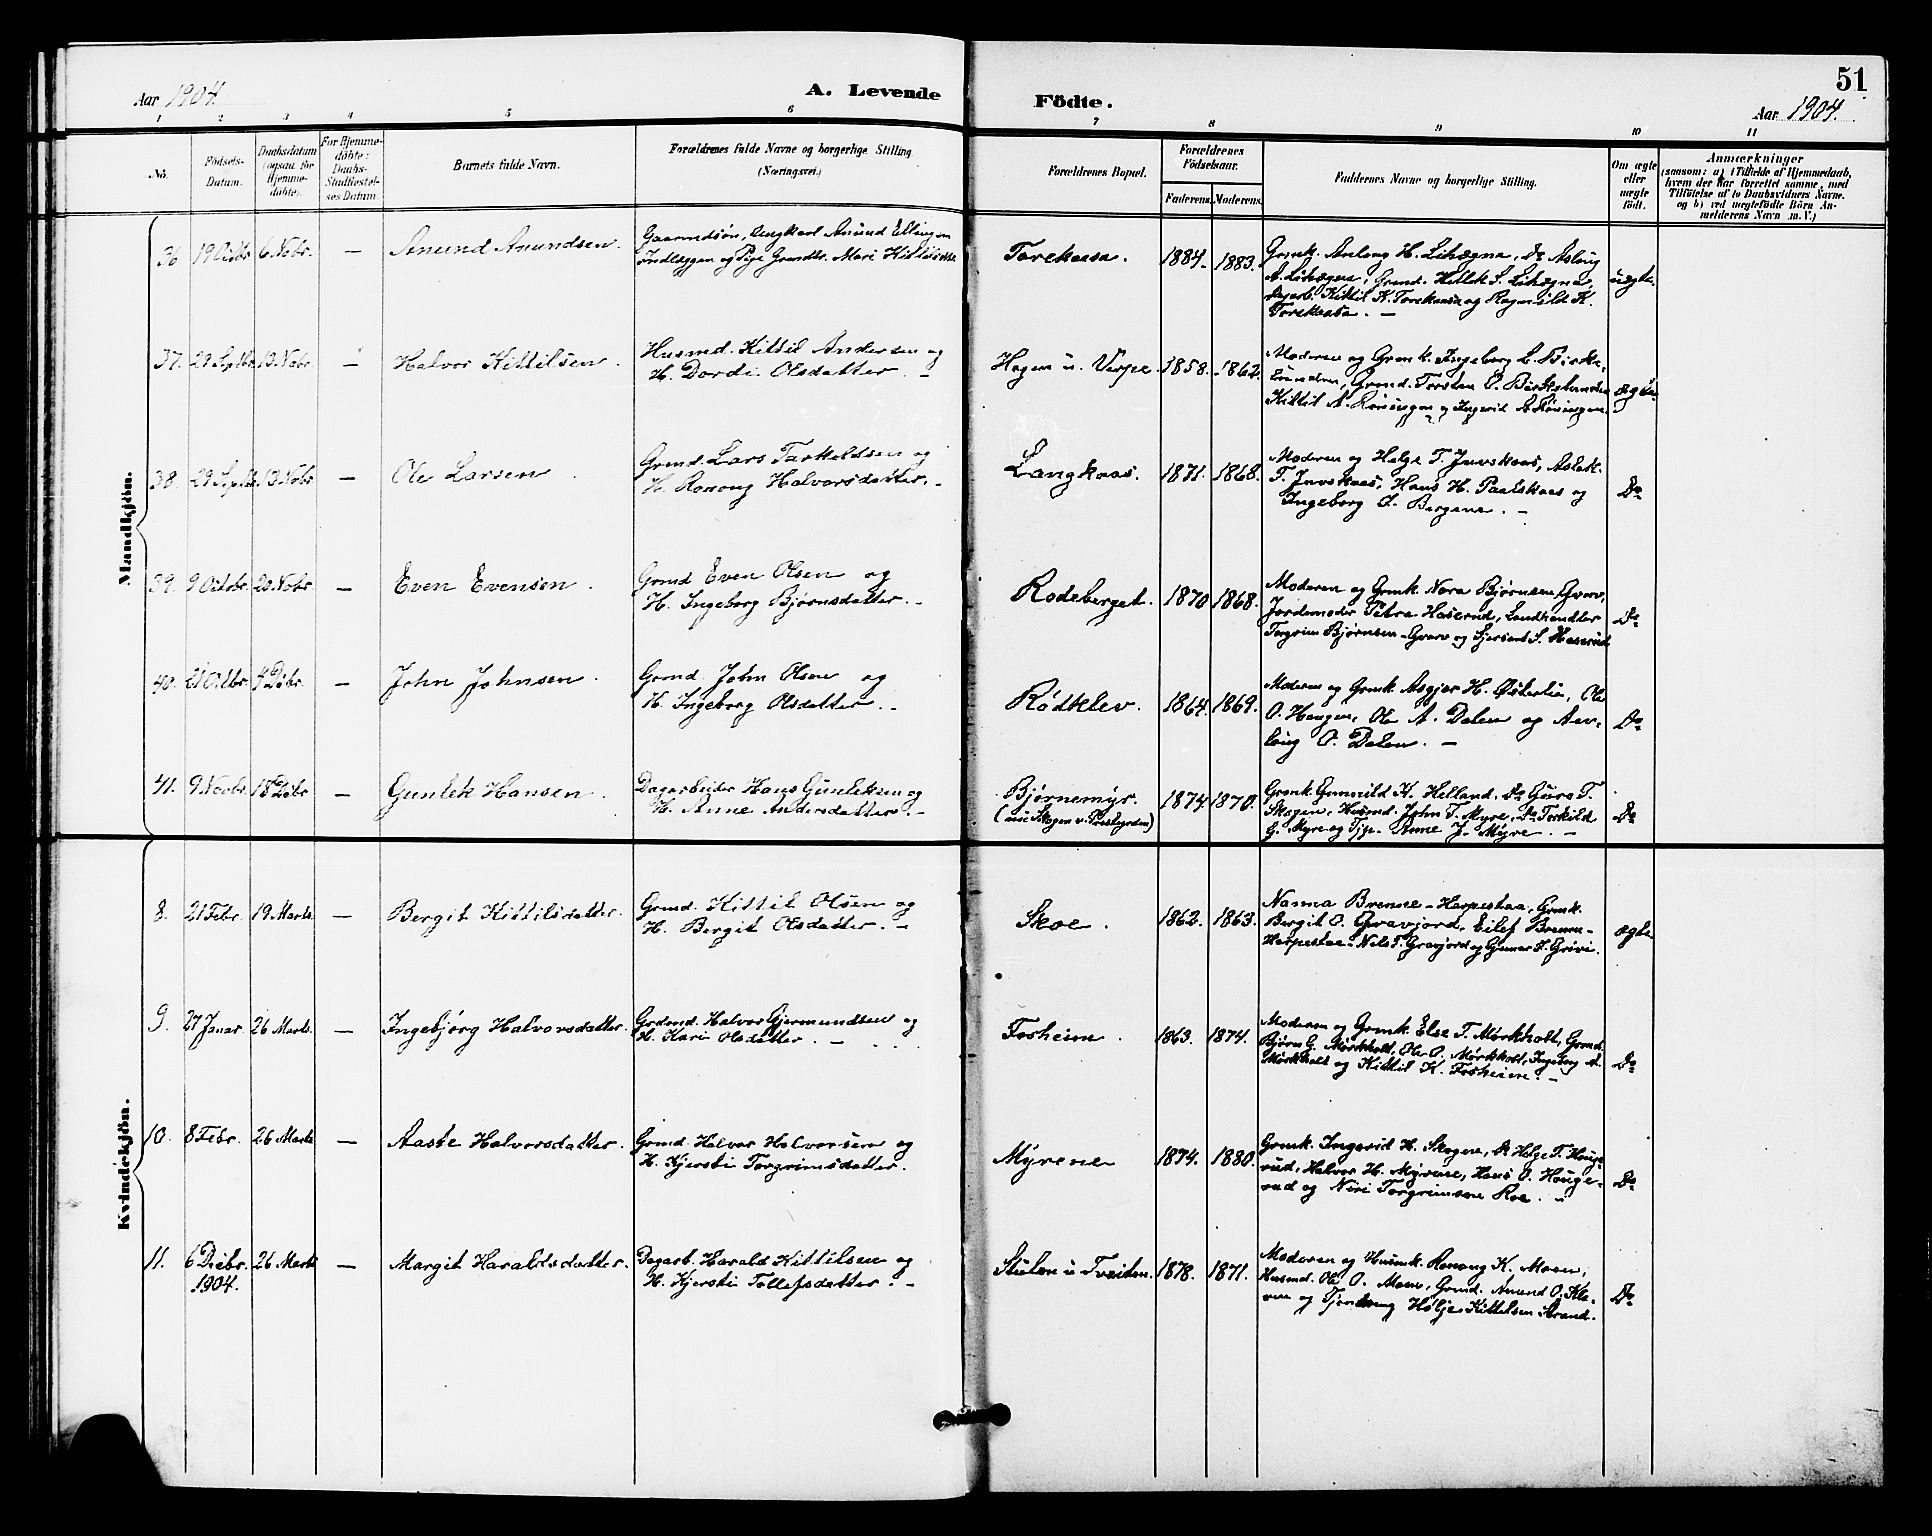 51
Aar 1904.
A. Levende
Födte.
Aar 1904.
1 2 3 4 5 6 7 8 9 10 11
No.
Födsels-
Datum.
Daabsdatum
(ogsaa for
Hjemme-
døbte).
For Hjemme-
døbte:
Daabs-
Stadfæstel-
ses Datum.
Barnets fulde Navn.
Forældrenes fulde Navne og borgerlige Stilling
(Næringsvei.)
Forældrenes Bopæl.
Forældrenes
Födselsaar.
Faderens. Moderens.
Faddernes Navne og borgerlige Stilling.
Om ægte
eller
uægte
födt.
Anmærkninger
(saasom: a) i Tilfælde af Hjemmedaab,
hvem der har forrettet samme, med
Tilföielse af to Daabsvidners Navne.
og b) ved uægtefödte Börn An-
melderens Navn m. V.)
Mandkjön.
36 19 Octbr 6 Novbr. — Anund Anundsen.
Gaardmdsön, Ungkarl Anund Ellingsen
og Pige Mari
Torekaasa. 1884. 1883.
Grmk. Aslaug H. Lihægna, Do Aslaug
A. Lihægna, Grmd. Kittil
Dagarb. Kittil K. Torekaasa og Ragnhild K.
Torekaasa. —
uægte.
37. 29 Septbr 13 Novbr. — Halvor Kittilsen.
Husmd. Kittil Andersen og
H. Dordi Olsdatter. —
Hagen u. Verpe. 1858. 1862.
Moderen og Grmk. Ingeborg L. Birke-
lunden, Grmd. Torsten O. Birkelunden
Kittil A. Röningen og Ingerid A. Röningen.
ægte.
38. 29 Septbr 13 Novbr — Ole Larsen.
Grmd. Lars Tarkeldsen og
H. Ronoug Halvorsdatter. —
Langkaas. 1871. 1868.
Moderen og Helge T. Juvskaas, Aslak
T. Juvskaas, Hans H. Paalskaas og
Ingeborg O. Bergene. —
Do
39. 9 Octobr. 20 Novbr. — Even Evensen.
Grmd Even Olsen og
H. Ingeborg Bjørnsdatter. —
Rodeberget. 1870 1868.
Moderen og Grmk Nora Bjørnsen Gvarv,
Jordemoder Petra Haserud, Landhandler
Torgrim Bjørnsen-Gvarv og Sjersant S. Haserud
Do
40. 21 Octbr. 4 Dcbr. — John Johnsen.
Grmd. John Olsen og
H. Ingeborg Olsdatter. —
Rödkleiv. 1864. 1869.
Moderen og Grmk. Asgjer H. Österlia, Ole
O. Haugen, Ole A. Dalen og Aas-
laug O. Dalen. —
Do
41. 9 Novbr. 18 Dcbr — Gunlek Hansen.
Dagarbeider Hans Gunleksen og
H. Anne Andersdatter. —
Bjørnemyr.
(nu Skogen v. Prestgrden)
1874 1870.
Grmk. Gunnild K. Helland, Do Guro T.
Skogen, Husmd. John T. Myre, Do Torkild
G. Myre og Tjp. Anne J. Myre. —
Do
Kvindekjön.
8. 21 Febr. 19 Marts. — Bergit Kittilsdatter.
Grmd. Kittil Olsen og
H. Bergit Olsdatter. —
Skoe. 1862. 1863.
Nanna Brenne-Harpestaa, Grmk.
Bergit O. Gravjord, Eilef Brenne-
Harpestaa, Nels T. Gravjord og Gunar S. Grivi.
ægte
9. 27 Januar. 26 Marts. — Ingebjörg Halvorsdatter.
Grdmd. Halvor Gjermundsen og
H. Kari Olsdatter. —
Forheim. 1863. 1874.
Moderen og Grmk. Else T. Mørkholt, Grmd.
Bjørn G. Mørkholt, Ole O. Mørkholt, Ingeborg A.
Mørkholt og Kittil K. Forheim. —
Do
10. 8 Febr. 26 Marts — Aaste Halvorsdatter.
Grmd. Halvor Halvorsen og
H. Kjersti Torgrimsdatter.
Myrene 1874. 1880.
Grmk. Ingerid H. Skogen, Do Helge T. Hauge-
rud, Halvor H. Myrene, Hans O. Hauge-
rud og Niri Torgrimsen Roe. —
Do
11. 6 Dcbr. 26 Marts — Margit Haraldsdatter.
1904.
Dagarb. Harald Kittilsen og
H. Kjersti Tollefsdatter. —
Stulen u Tveiten. 1878. 1871.
Moderen og Husmk. Ronoug K. Moen,
Husmd. Ole O. Moen, Grmd. Anund O. Kle-
ven og Tjdreng Hølje Kittelsen Strand.
Do